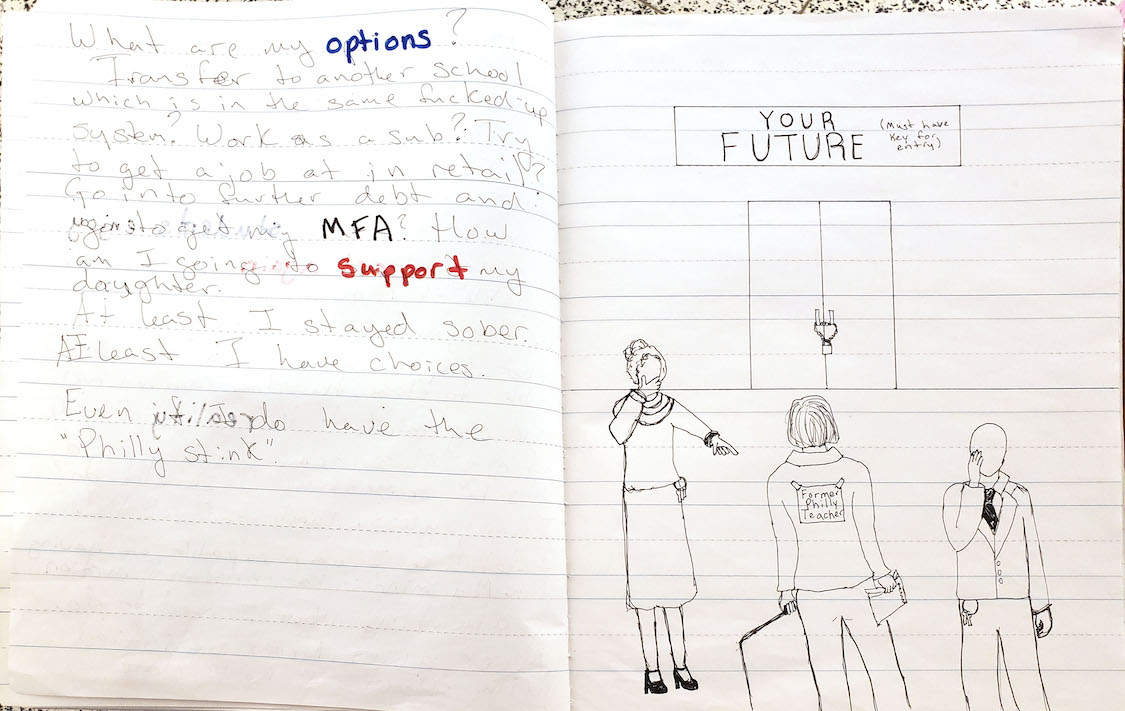 What are my options?
Transfer to another school
which is in the same fucked-up
system? Work as a sub? Try
to get a job at in retail?
Go into further debt and
to get my MFA? How
am I going to support my
daughter.
At least I stayed sober.
At least I have choices.
Even if I do have the
"Philly stink".
YOUR
FUTURE
(Must have
key for
entry)
Former
Philly
Teacher